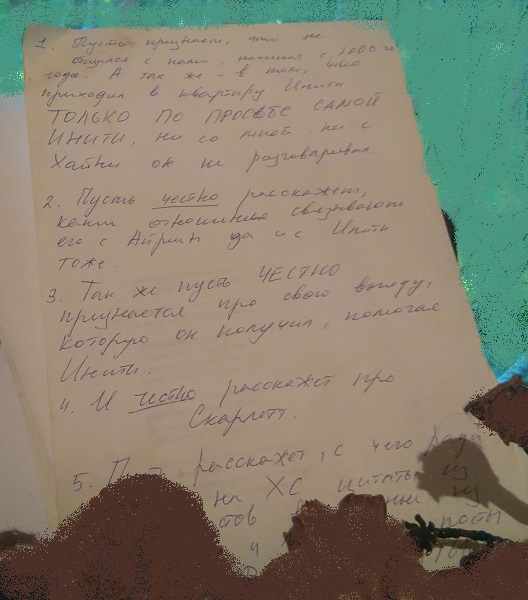 1. Пусть признает, что не
общался с нами, начиная с 2006 го
года. А так же - в том, что
приходил в квартиру Инити
ТОЛЬКО ПО ПРОСЬБЕ САМОЙ
ИНИТИ, ни со мной, ни с
Хайни он не разговаривал.
2. Пусть честно расскажет,
какие отношения связывают
его с Айрин да и с Инити
тоже.
3. Так же пусть ЧЕСТНО
признается про свою выгоду,
которую он получил, помогая
Инити.
4. И честно расскажет про
Скарлетт.
5. расскажет, с чего ради
на ХС цитаты из